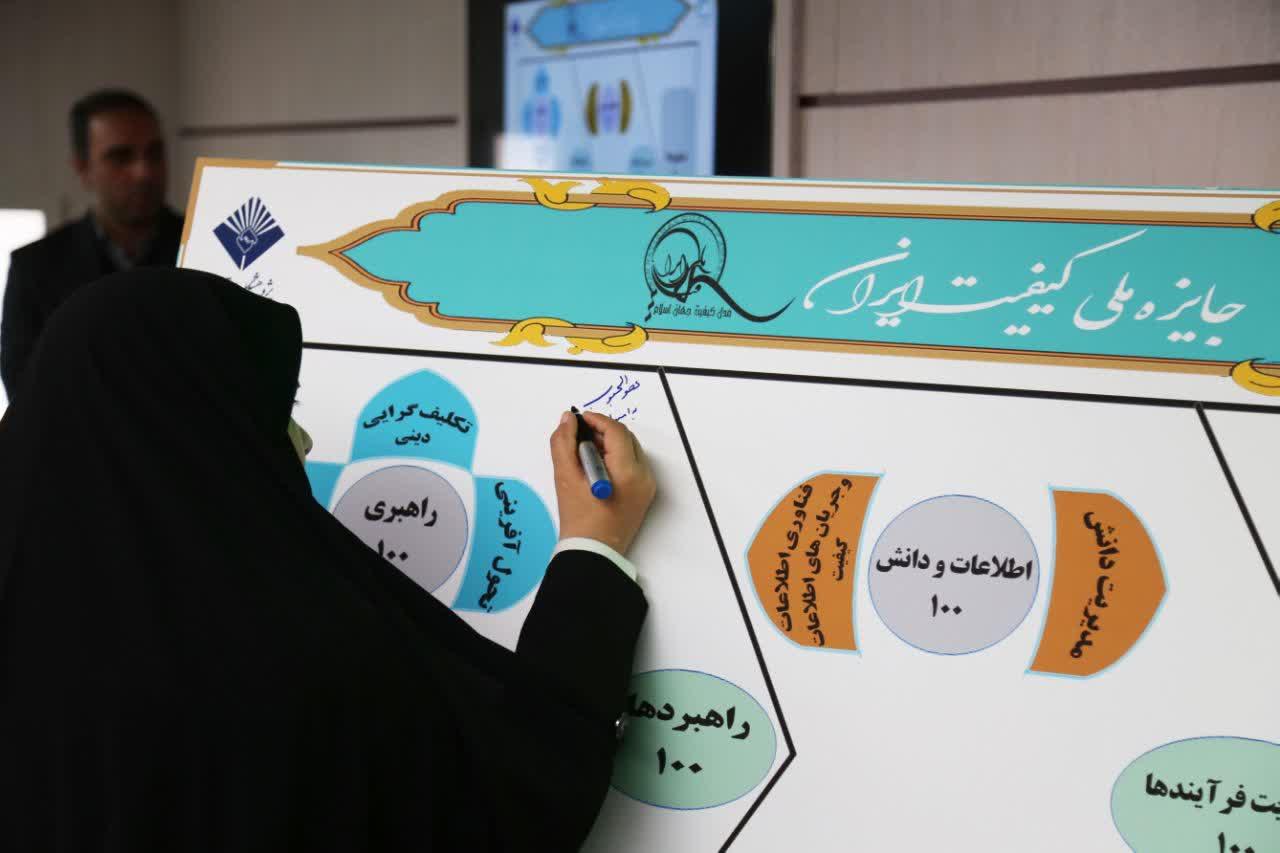 جایزه ملی کیفیت ایران
مدل کیفیت جهان اسلام
تکلیف گرایی
دینی
راهبری
۱۰۰
تحول آفرینی
راهبردها
۱۰۰
مدیریت دانش
اطلاعات و دانش
۱۰۰
فناوری اطلاعات
و جریان های اطلاعات
کیفیت
فرآیندها
۱۰۰